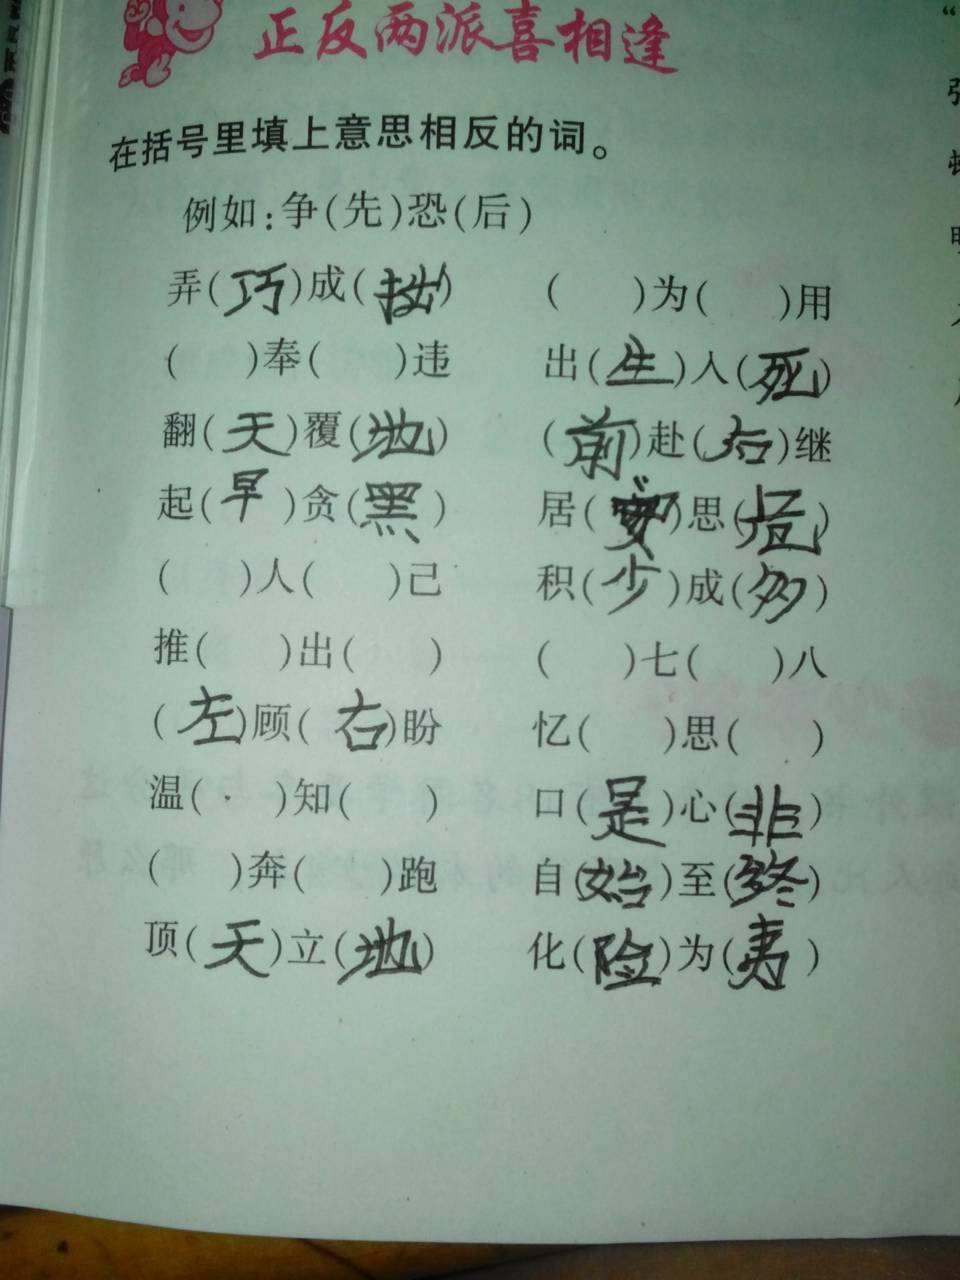 正反两派喜相逢
在括号里填上意思相反的词。
例如:争(先)恐(后)
弄(巧)成(拙) ( )为( )用
( )奉( )违 出(生)人(死)
翻(天)覆(地) (前)赴(右)继
起(早)贪(黑) 居(安)思(危)
( )人( )己 积(少)成(多)
推( )出( ) ( )七( )八
(左)顾(右)盼 忆( )思( )
温( )知( ) 口(是)心(非)
( )奔( )跑 自(始)至(终)
顶(天)立(地) 化(险)为(夷)